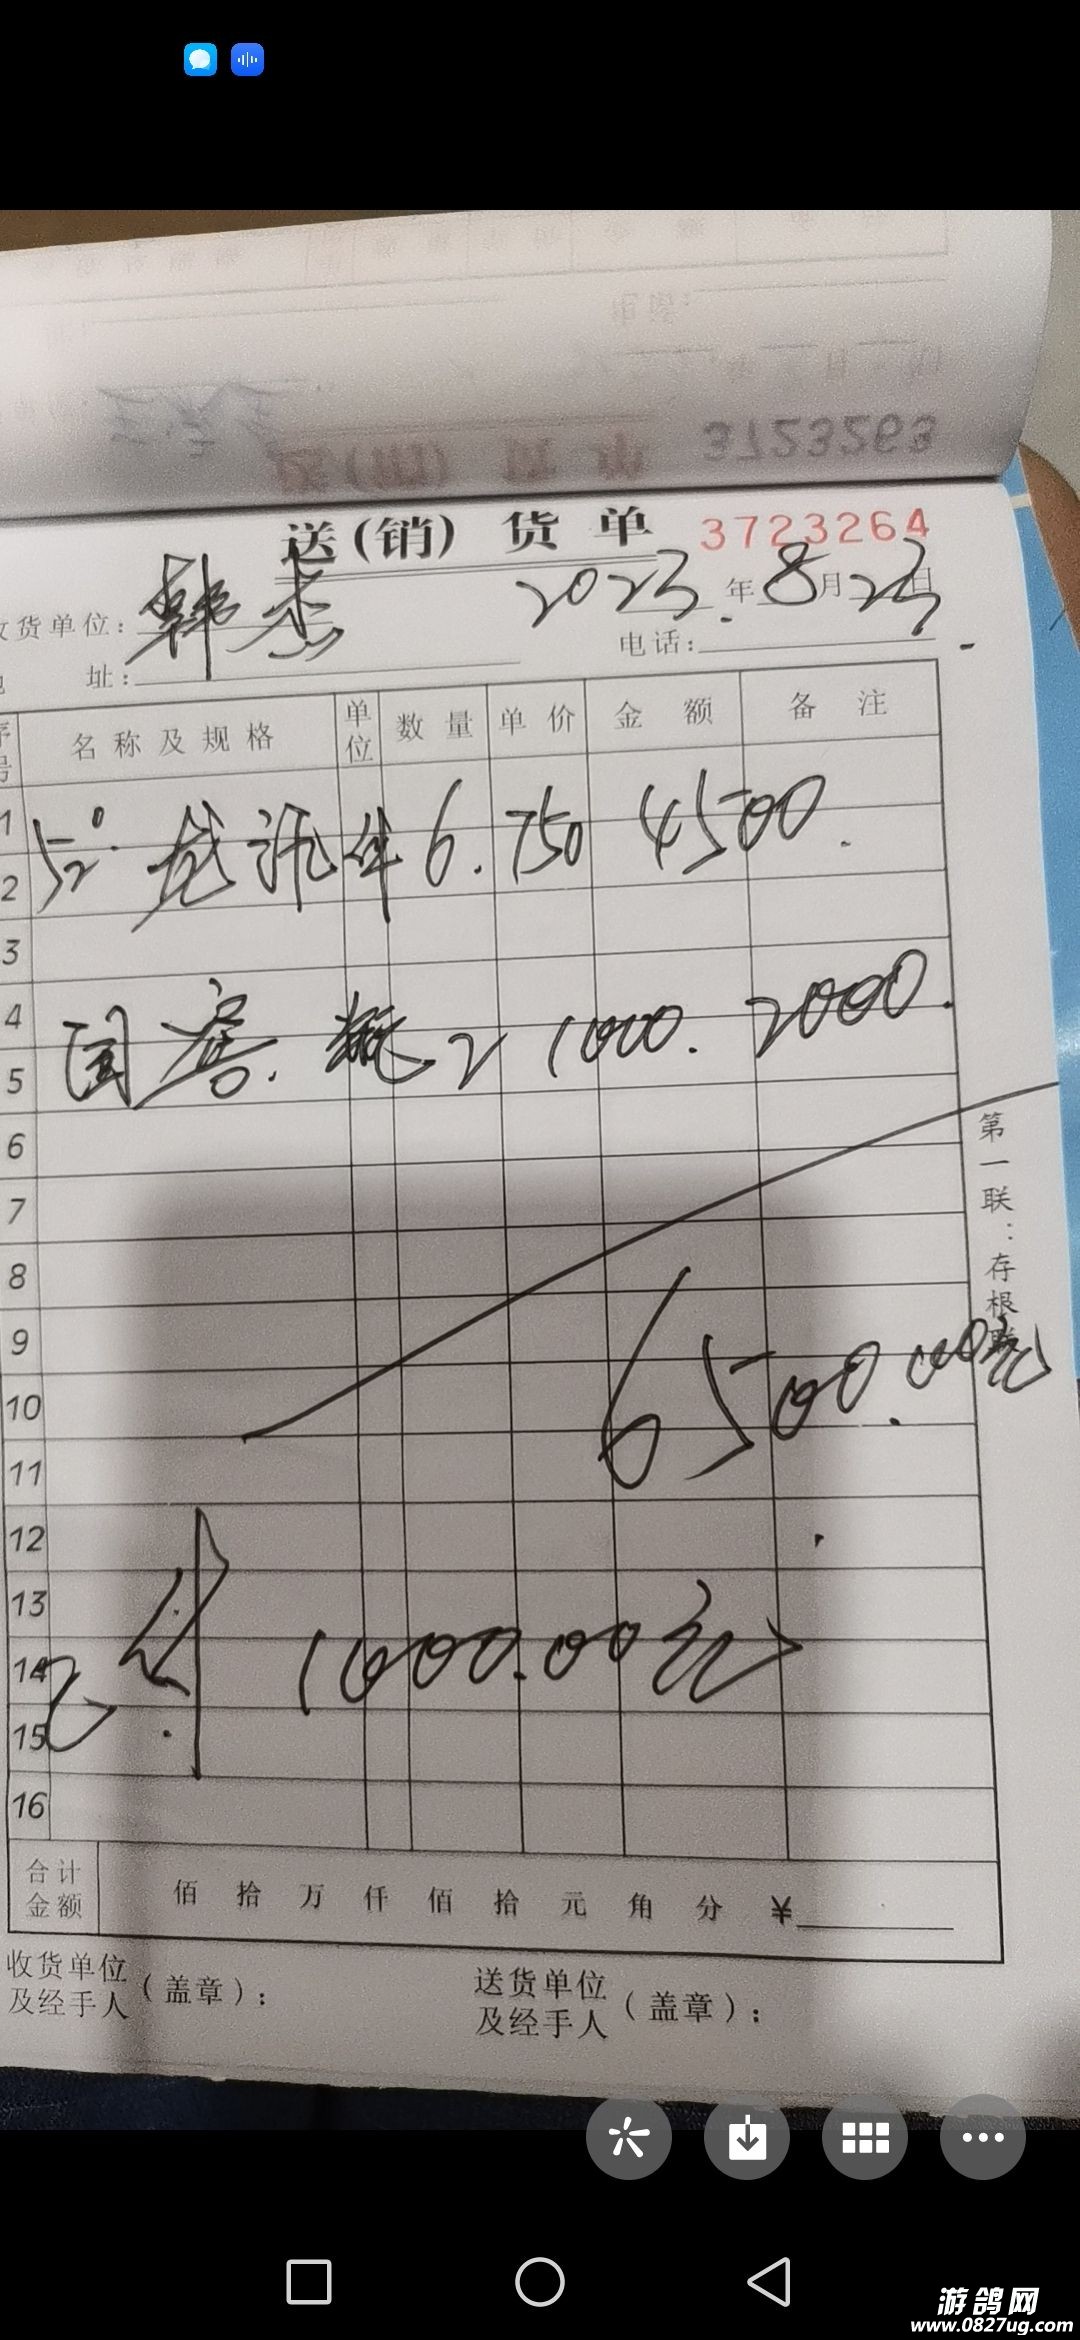 3723263
送(销)货单 3723264
收货单位：韩杰 2023年8月23日
址： 电话：
序号 名称及规格 单位 数量 单价 金额 备注
1
52° 件 6. 750 4500.
2
3
4
国窖. 瓶 2 1000. 2000.
5
6
7
8
9
6500.00元
10
11
12
13
14
1000.00元
15
16
合计金额 佰 拾 万 仟 佰 拾 元 角 分 ¥
收货单位及经手人（盖章）： 送货单位及经手人（盖章）：
第一联：存根联
游鸽网
www.0827ug.com